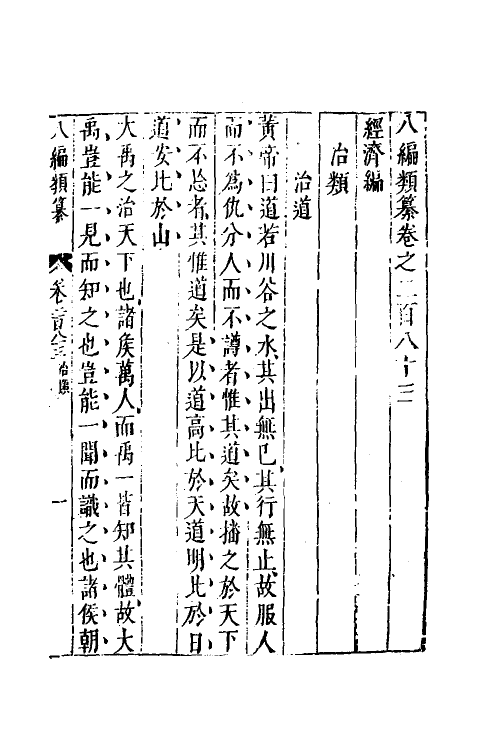 八編類纂卷之二百八十三
經濟編
治類
治道
黃帝曰道若川谷之水其出無已其行無止故服人
而不爲仇分人而不譐者惟其道矣故播之於天下
而不忘者其惟道矣是以道高比於天道明比於日
道安比於山
大禹之治天下也諸矦萬人而禹一皆知其體故大
禹豈能一見而知之也豈能一聞而識之也諸侯朝
八編類纂 卷二百八十三 治類 一